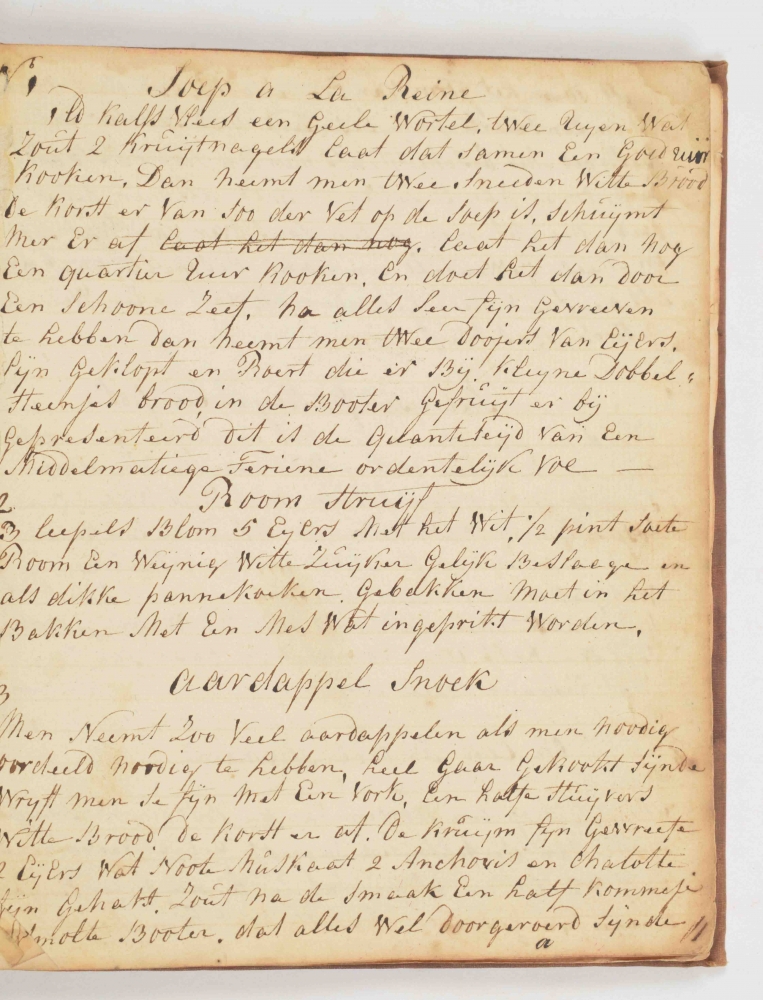 N 1
Soep a La Reine
1 ld Kalfs Vlees een Geele Wortel, twee Uyen Wat
Zoût 2 Krûijtnagels Laat dat samen Een Goed uur
Kooken. Dan neemt men twee Sneeden Witte Brood
de Korst er Van Soo der Vet op de Soep is, Schûÿmt
Mer Er af Laat het dan nog. Laat het dan Nog
Een quartier Uur Kooken, En doet het dan door
Een Schoone Zeef, na alles Seer fijn Gevreeven
te hebben Dan neemt men twee Doojers Van Eijers,
fijn Geklopt en Roert die er Bij Kleyne Dobbel„
Steentjes brood, in de Booter Gefruijt er bij
Gepresenteerd dit is de Quantiteijd Van Een
Middelmatiege Teriene ordentelijk Vol —
2
Room Struijf
3 leepels Blom 5 Eijers Met het Wit, 1/2 pint Soete
Room Een Weijnig Witte Zuijker Gelijk Beslaage en
als dikke pannekoeken. Gebakken Moet in het
Bakken Met Een Mes Wat ingeprikt Worden.
3
Aardappel Snoek
Men Neemt Zoo Veel aardappelen als men noodig
oordeeld nordig te hebben, heel Gaar Gekookt Sijnde
Wryft men Se fijn Met Een Vork, Een halfe Stuijvers
Witte Brood de Korst er af. De Krûijm fijn Gevreefe
2 Eijers Wat Noote Mûskaat 2 Anchovis en Chalotte
fijn Gehakt. Zoût na de Smaak Een half Kommetje
Smolte Booter. dat alles Wel Doorgeroerd Sijnde
a